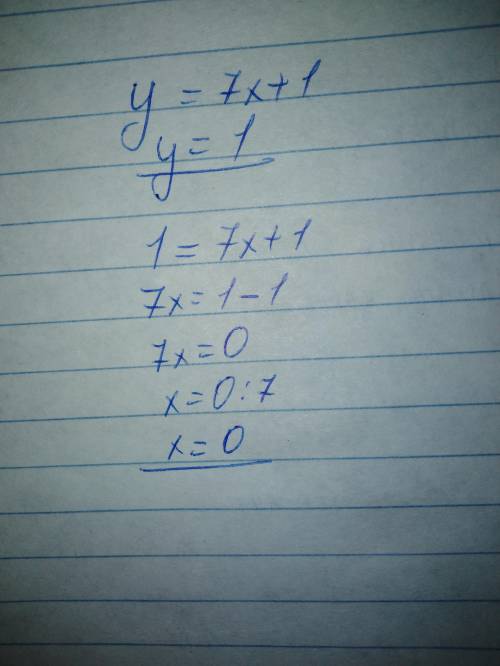 y = 7x+1
y = 1
1 = 7x+1
7x = 1 - 1
7x = 0
x = 0:7
x = 0